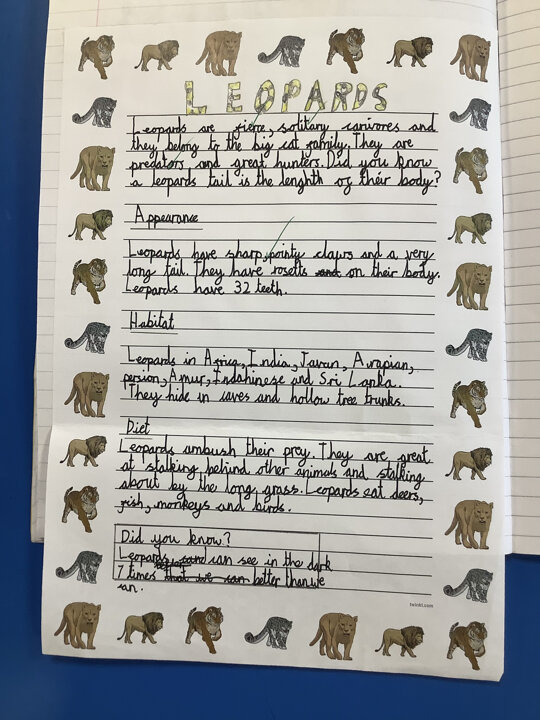 LEOPARDS
Leopards are fierce, solitary carnivores and
they belong to the big cat family. They are
predators and great hunters. Did you know
a leopards tail is the lenghth of their body?
Appearance
Leopards have sharp, pointy claws and a very
long tail. They have rosetts and on their body.
Leopards have 32 teeth.
Habitat
Leopards in Africa, India, Javan, Arapian,
persion, Amur, Indahinese and Sri Lanka.
They hide in caves and hollow tree trunks.
Diet
Leopards ambush their prey. They are great
at stalking behind other animals and stalking
about by the long grass. Leopards eat deers,
fish, monkeys and birds.
Did you know?
Leopards can see in the dark
7 times that we can better than we
can.
twinkl.com